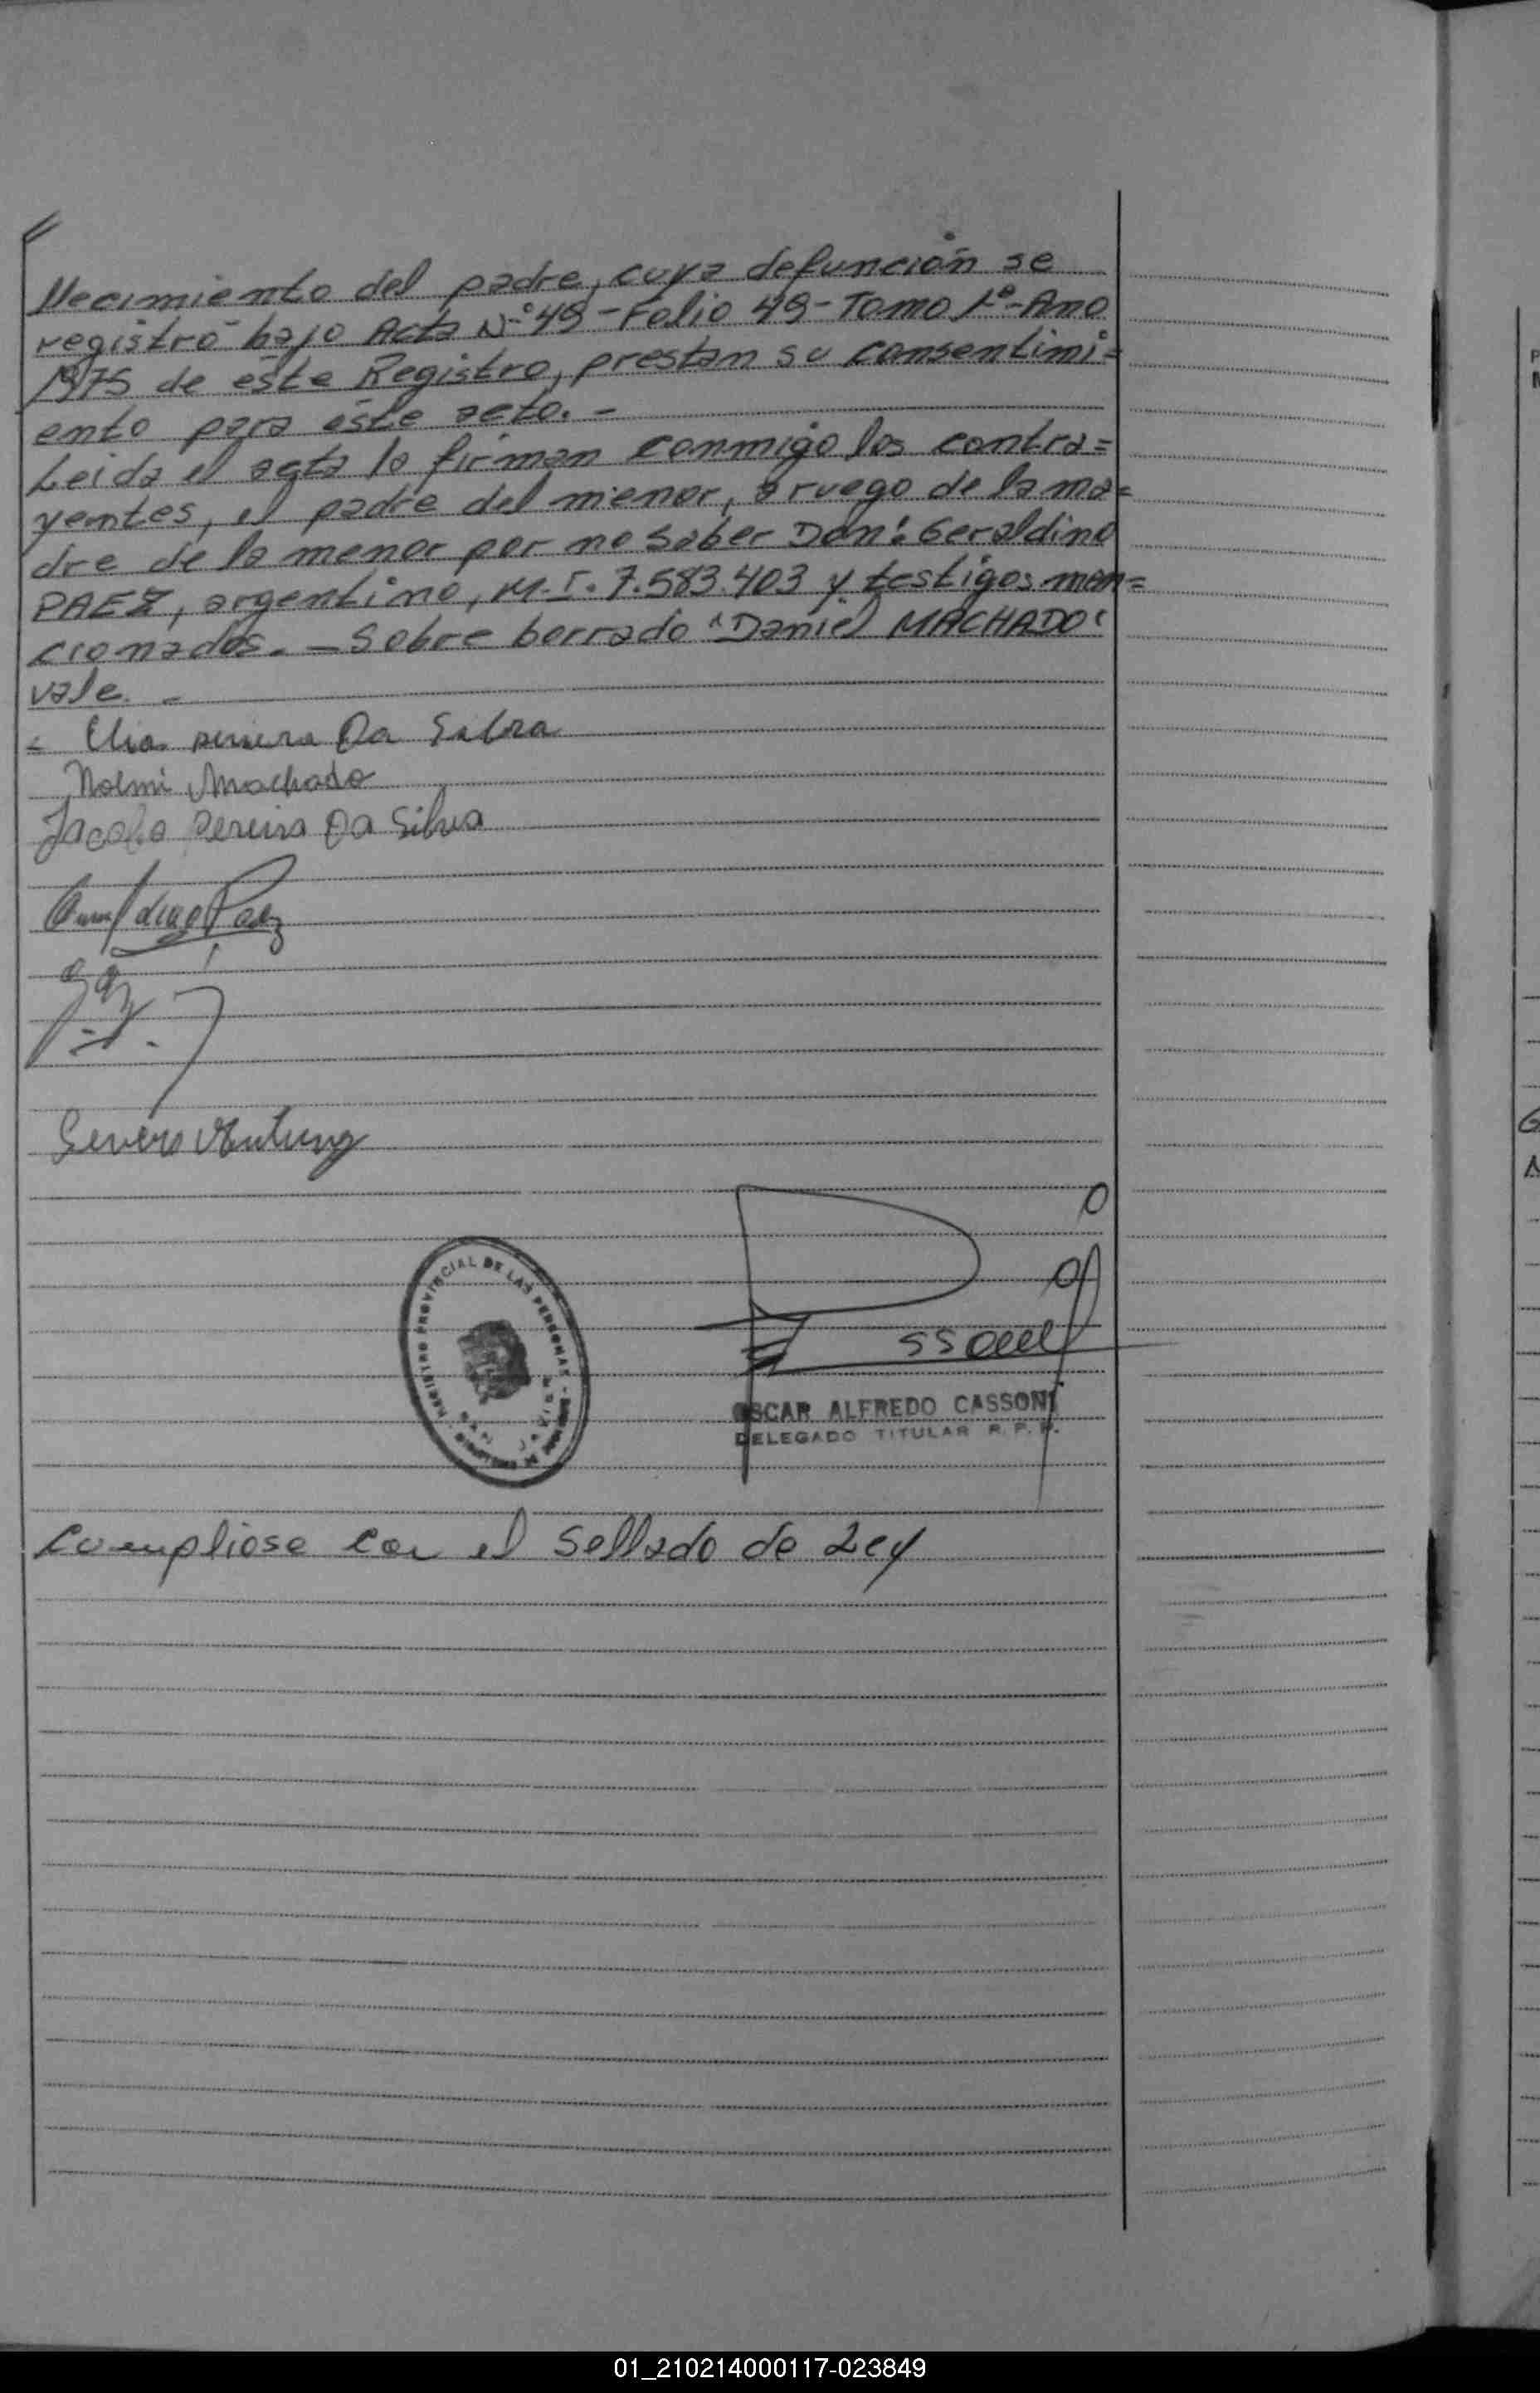 llecimiento del padre, cuya defunción se
registró bajo Acta Nº 49 - Folio 49 - Tomo 1º - Ano
1975 de éste Registro, prestan su consentimi=
ento para éste acto. -
Leida el acta la firman conmigo los contra=
yentes, el padre del menor, a ruego de la ma=
dre de la menor por no saber Don: Geraldino
PAEZ, argentino, M.I. 7.583.403 y testigos men=
cionados. - Sobre borrado "Daniel MACHADO"
vale. -
Pereira Da
Noemi Machado
Jacobo Pereira Da Silva
Paez
Severo
REGISTRO PROVINCIAL DE LAS PERSONAS
OSCAR ALFREDO CASSONI
DELEGADO TITULAR R. P. P.
Cumpliose con el sellado de Ley
01_210214000117-023849